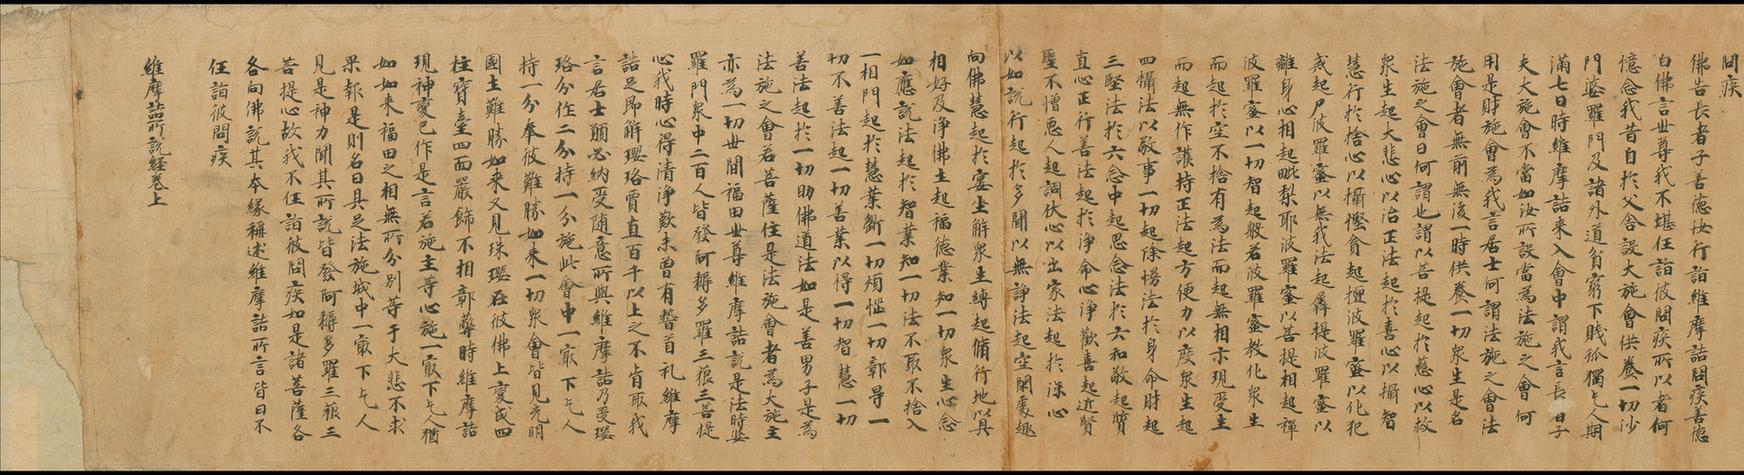 問疾
佛告長者子善德汝行詣維摩詰問疾善德
白佛言世尊我不堪任詣彼問疾所以者何
憶念我昔自於父舍設大施會供養一切沙
門婆羅門及諸外道貧窮下賤孤獨乞人期
滿七日時維摩詰來入會中謂我言長者子
夫大施會不當如汝所設當為法施之會何
用是財施會為我言居士何謂法施之會法
施會者無前無後一時供養一切眾生是名
法施之會曰何謂也謂以菩提起於慈心以救
眾生起大悲心以治正法起於喜心以攝智
慧行於捨心以攝慳貪起檀波羅蜜以化犯
戒起尸波羅蜜以無我法起羼提波羅蜜以
離身心相起毗梨耶波羅蜜以菩提相起禪
波羅蜜以一切智起般若波羅蜜教化眾生
而起於空不捨有為法而起無相示現受生
而起無作護持正法起方便力以度眾生起
四攝法以敬事一切起除慢法於身命財起
三堅法於六念中起思念法於六和敬起質
直心正行善法起於淨命心淨歡喜起近賢
聖不憎惡人起調伏心以出家法起於深心
以如說行起於多聞以無諍法起空閑處趣
向佛慧起於宴坐解眾生縛起脩行地以具
相好及淨佛土起福德業知一切眾生心念
如應說法起於智業知一切法不取不捨入
一相門起於慧業斷一切煩惱一切鄣导一
切不善法起一切善業以得一切智慧一切
善法起於一切助佛道法如是善男子是為
法施之會若菩薩住是法施會者為大施主
亦為一切世間福田世尊維摩詰說是法時婆
羅門眾中二百人皆發阿耨多羅三藐三菩提
心我時心得清淨歎未曾有稽首礼維摩
詰足即解瓔珞價直百千以上之不肯取我
言居士願必納受隨意所與維摩詰乃受瓔
珞分作二分持一分施此會中一最下乞人
持一分奉彼難勝如來一切眾會皆見光明
國土難勝如來又見珠瓔在彼佛上變成四
柱寶臺四面嚴飾不相鄣蔽時維摩詰
現神變已作是言若施主等心施一最下乞人猶
如如來福田之相無所分別等于大悲不求
果報是則名曰具足法施城中一最下乞人
見是神力聞其所說皆發阿耨多羅三藐三
菩提心故我不任詣彼問疾如是諸菩薩各
各向佛說其本緣稱述維摩詰所言皆曰不
任詣彼問疾
維摩詰所說經卷上